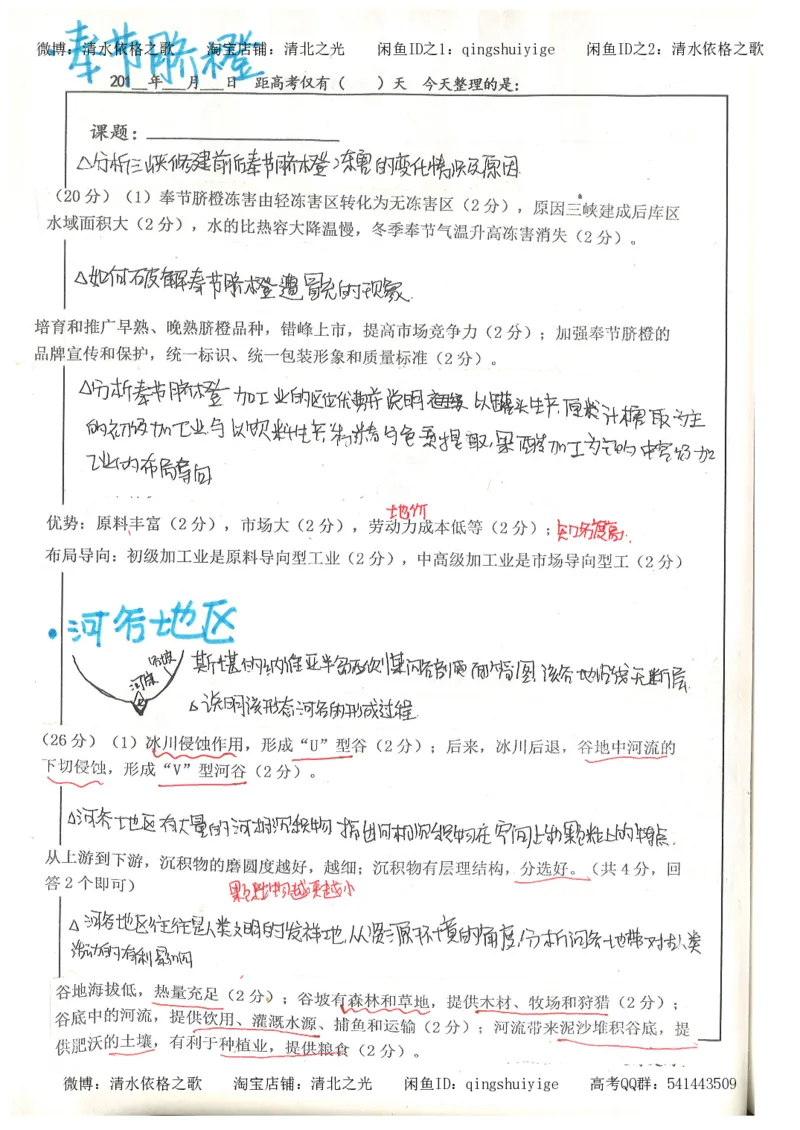 微博：清水依格之歌　　淘宝店铺：清北之光　　闲鱼ID之1：qingshuiyige　　闲鱼ID之2：清水依格之歌
·奉节脐橙
201__年___月___日　距高考仅有（　　）天　今天整理的是：
课题：
△分析三峡修建前后奉节脐橙冻害的变化情况及原因.
（20分）（1）奉节脐橙冻害由轻冻害区转化为无冻害区（2分），原因三峡建成后库区
水域面积大（2分），水的比热容大降温慢，冬季奉节气温升高冻害消失（2分）。
△如何破解奉节脐橙遭冒充的现象.
培育和推广早熟、晚熟脐橙品种，错峰上市，提高市场竞争力（2分）；加强奉节脐橙的
品牌宣传和保护，统一标识、统一包装形象和质量标准（2分）。
△分析奉节脐橙加工业的区位优势并说明 以罐头生产.原料汁榨取为主
的初级加工业与以饮料生产、 与色素提取,果醋加工为主的中高级加
工业的布局导向
地价
优势：原料丰富（2分），市场大（2分），劳动力成本低等（2分）；知名度高.
布局导向：初级加工业是原料导向型工业（2分），中高级加工业是市场导向型工（2分）
·河谷地区
谷坡
河床
斯堪的纳维亚半岛西侧某河谷剖面的简图,该谷地陷没无断层.
△说明该形态河谷的形成过程.
（26分）（1）冰川侵蚀作用，形成“U”型谷（2分）；后来，冰川后退，谷地中河流的
下切侵蚀，形成“V”型河谷（2分）。
△河谷地区有大量的河湖沉积物,指出河相沉积物在空间上和颗粒上的特点.
从上游到下游，沉积物的磨圆度越好，越细；沉积物有层理结构，分选好。（共4分，回
答2个即可）
颗粒物越来越小
△河谷地区往往是人类文明的发祥地,从资源环境的角度,分析河谷地带对人类
活动的有利影响
谷地海拔低，热量充足（2分）；谷坡有森林和草地，提供木材、牧场和狩猎（2分）；
谷底中的河流，提供饮用、灌溉水源、捕鱼和运输（2分）；河流带来泥沙堆积谷底，提
供肥沃的土壤，有利于种植业，提供粮食（2分）。
微博：清水依格之歌　　淘宝店铺：清北之光　　闲鱼ID：qingshuiyige　　高考QQ群：541443509